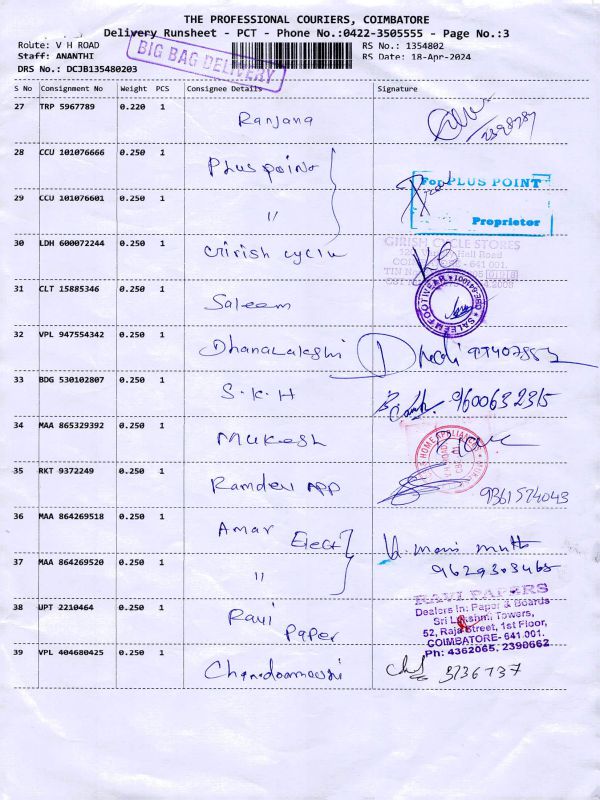 THE PROFESSIONAL COURIERS, COIMBATORE
Delivery Runsheet - PCT - Phone No.:0422-3505555 - Page No.:3
Route: V H ROAD
Staff: ANANTHI
DRS No.: DCJB135480203
BIG BAG DELIVERY
RS No.: 1354802
RS Date: 18-Apr-2024
S No Consignment No Weight PCS Consignee Details Signature
27 TRP 5967789 0.220 1 Ranjana
28 CCU 101076666 0.250 1 Plus point
For PLUS POINT
29 CCU 101076601 0.250 1 "
Proprietor
30 LDH 600072244 0.250 1 Girish cycle
GIRISH CYCLE STORES
31 CLT 15885346 0.250 1 Saleem
SALEEM FOOTWEAR
32 VPL 947554342 0.250 1 Dhanalakshi
33 BDG 530102807 0.250 1 S.K.H 9600632315
34 MAA 865329392 0.250 1 Mukesh
HOME APPLIANCE
35 RKT 9372249 0.250 1 Ramdev APP 9361574043
36 MAA 864269518 0.250 1 Amar Elect
9629303465
37 MAA 864269520 0.250 1 "
38 UPT 2210464 0.250 1 Ravi Paper
RAVI PAPERS
Dealers In: Paper & Boards
Sri Lakshmi Towers,
52, Raja Street, 1st Floor,
COIMBATORE - 641 001.
Ph: 4362065, 2390662
39 VPL 404680425 0.250 1